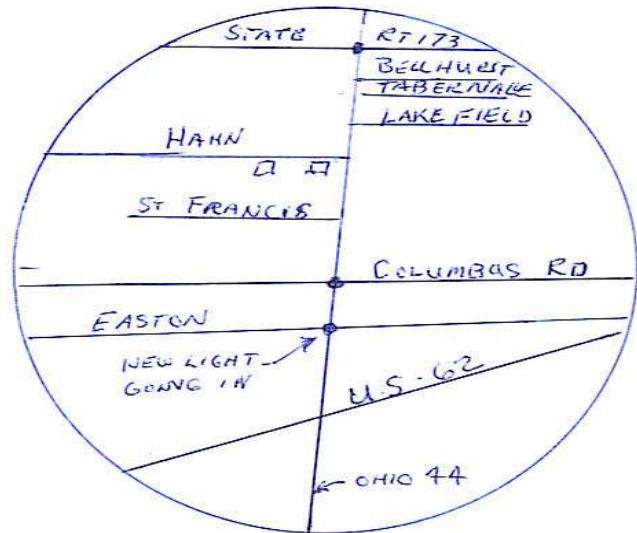 STATE RT 173
BELLHURST
TABERNACLE
LAKE FIELD
HAHN
ST FRANCIS
COLUMBUS RD
EASTON
NEW LIGHT
GONVG IN
U.S-62
OHIO 44